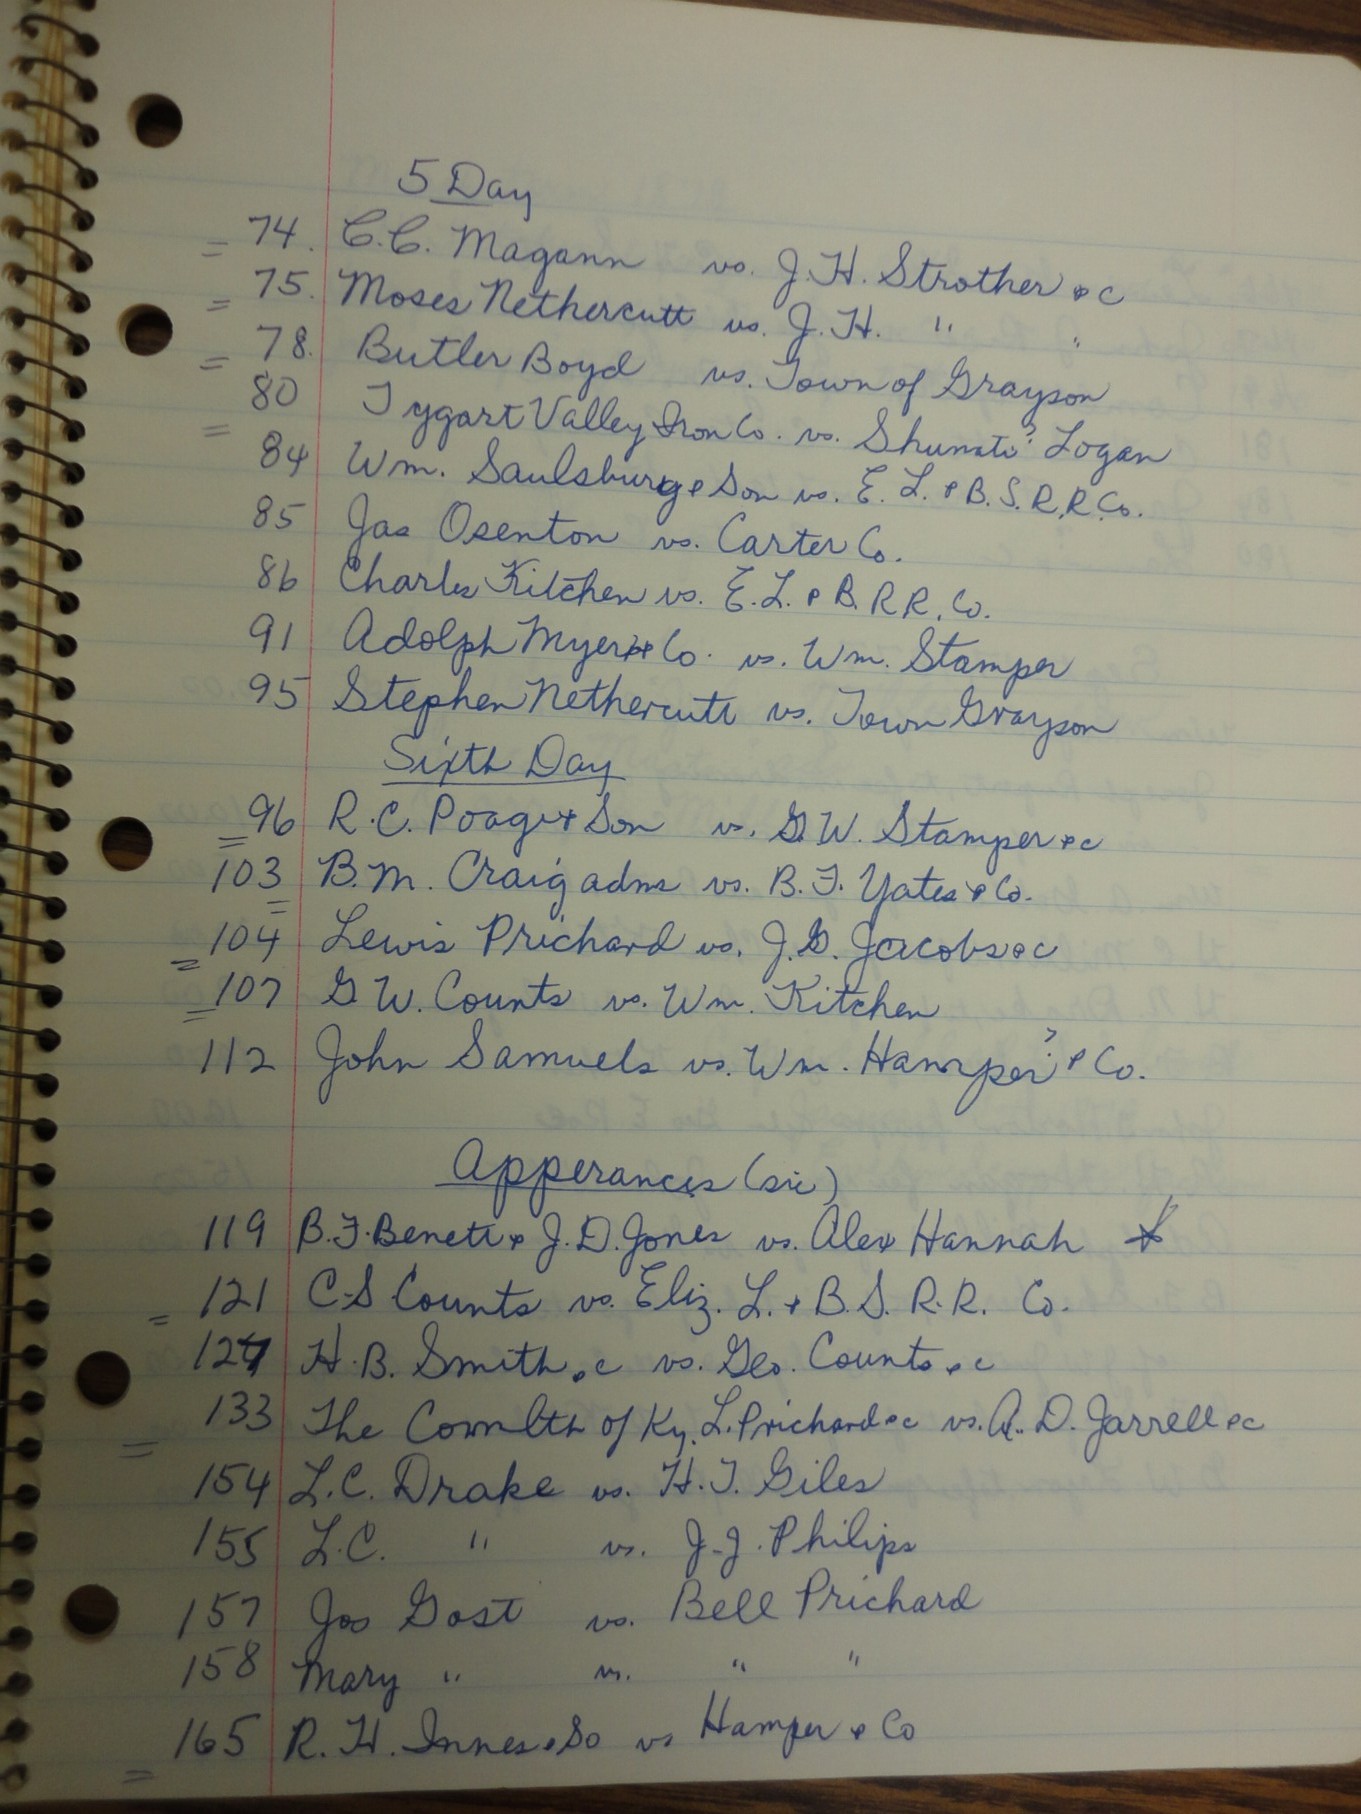 5 Day
= 74. C.C. Magann vs. J.H. Strother &c
= 75. Moses Nethercutt vs. J.H. " "
= 78. Butler Boyd vs. Town of Grayson
= 80 Tygart Valley Iron Co. vs. Shumate? Logan
84 Wm. Saulsburg & Son vs. E. L. & B. S. R.R. Co.
85 Jas Osenton vs. Carter Co.
86 Charles Kitchen vs. E.L. & B. R R. Co.
91 Adolph Myer & Co. vs. Wm. Stamper
95 Stephen Nethercutt vs. Town Grayson
Sixth Day
= 96 R.C. Poage & Son vs. G.W. Stamper &c
= 103 B.M. Craig adms vs. B.F. Yates & Co.
= 104 Lewis Prichard vs. J.G. Jacobs &c
= 107 G W. Counts vs. Wm. Kitchen
112 John Samuels vs. Wm. Hamper? & Co.
Apperances (sic)
119 B.F. Benett & J.D. Jones vs. Alex Hannah *
= 121 C.S Counts vs. Eliz. L. & B.S. R.R. Co.
127 H.B. Smith &c vs. Geo. Counts &c
= 133 The Comlth of Ky. L. Prichard &c vs. A. D. Jarrell &c
154 L.C. Drake vs. H.T. Giles
155 L.C. " vs. J.J. Philips
157 Jos Gost vs. Bell Prichard
158 Mary " vs. " "
= 165 R.H. Innes & So vs Hamper & Co